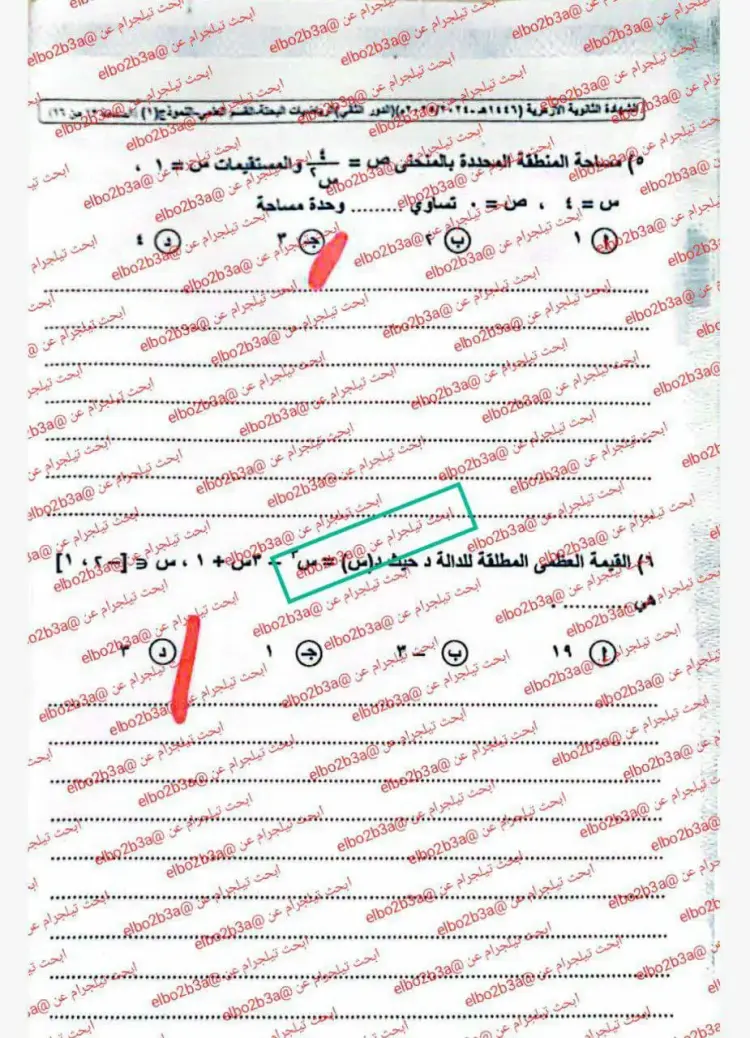 الشهادة الثانوية الأزهرية (١٤٤٦هـ-٢٠٢٤/٢٠٢٥م)(الدور الثاني)الرياضيات البحتة-القسم العلمي-النموذج(١) (الصفحة ١٣ من ١٦)
٥) مساحة المنطقة المحددة بالمنحنى ص = ٤/س٢ والمستقيمات س = ١ ،
س = ٤ ، ص = ٠ تساوي ......... وحدة مساحة
أ ١ ب ٢ جـ ٣ د ٤
٦) القيمة العظمى المطلقة للدالة د حيث د(س) = س٣ - ٣س + ١ ، س ∈ [-٢ ، ١]
هي ........... .
أ ١٩ ب -٣ جـ ١ د ٣
ابحث تيلجرام عن @elbo2b3a